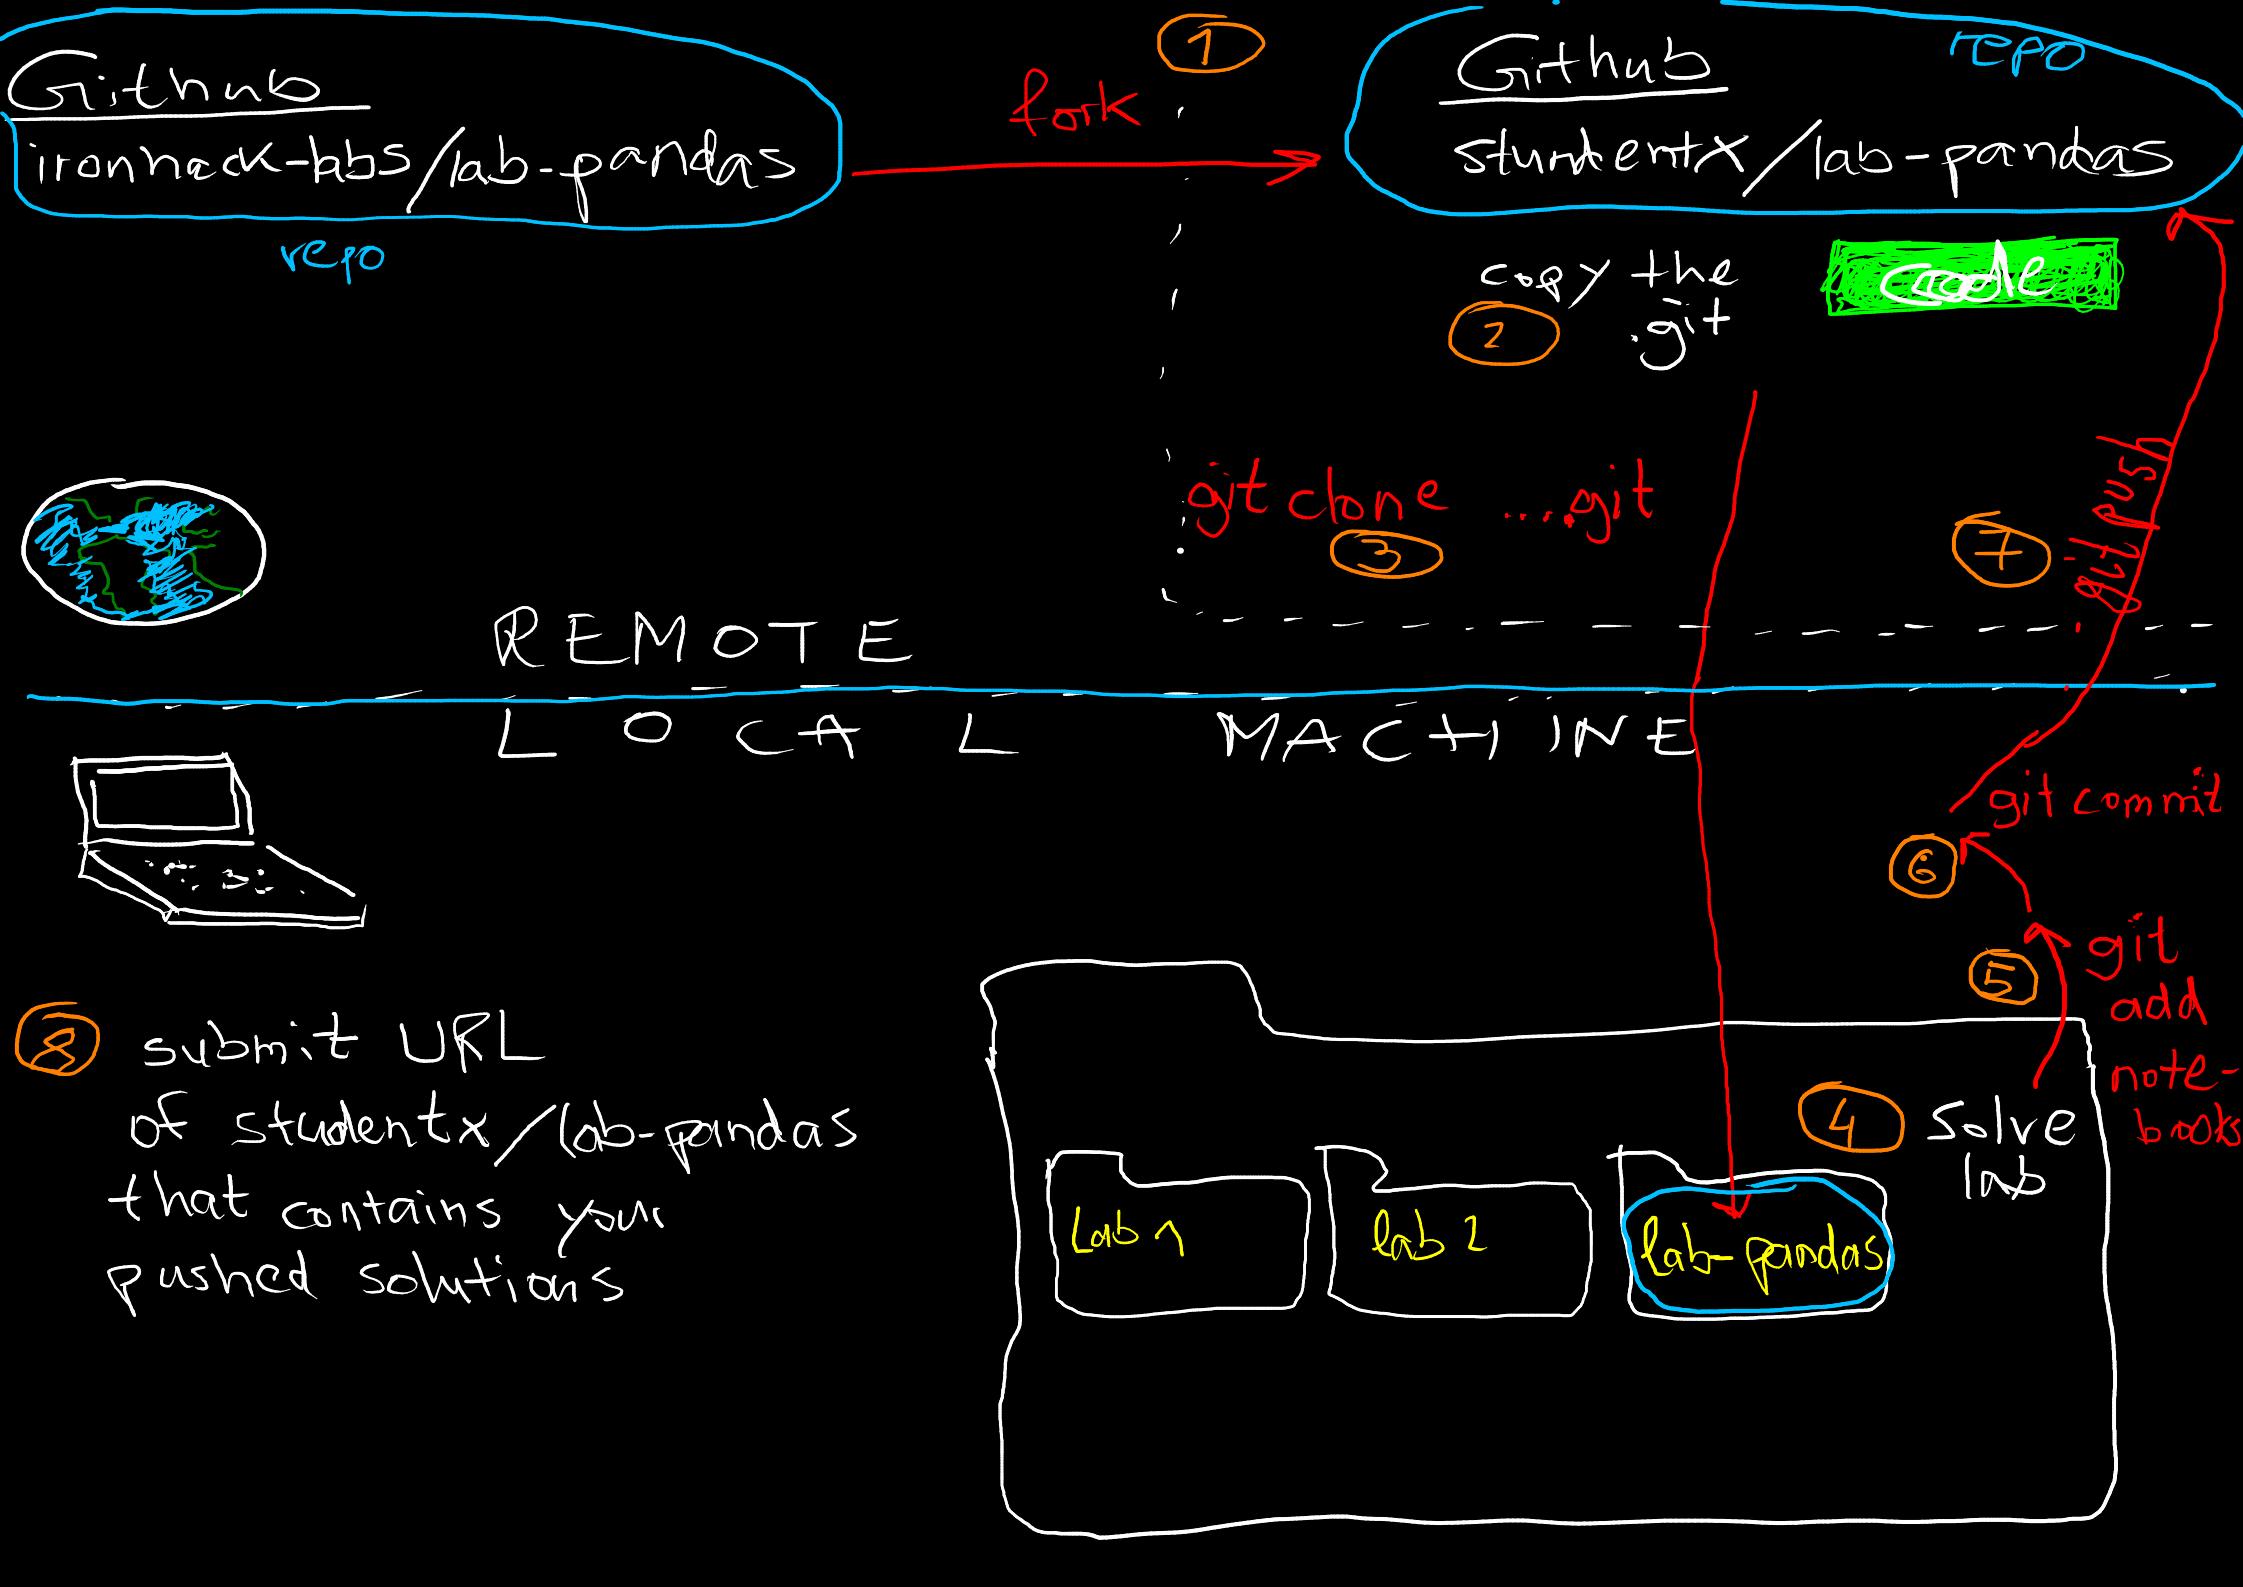 1
Github
ironhack-bbs/lab-pandas
repo
fork
Github
repo
studentx/lab-pandas
copy the
.git
2
code
git clone ....git
3
7
git push
REMOTE
LOCAL MACHINE
git commit
6
5
git
add
note-
books
4
solve
lab
Lab 1
lab 2
lab-pandas
8
submit URL
of studentx/lab-pandas
that contains your
pushed solutions